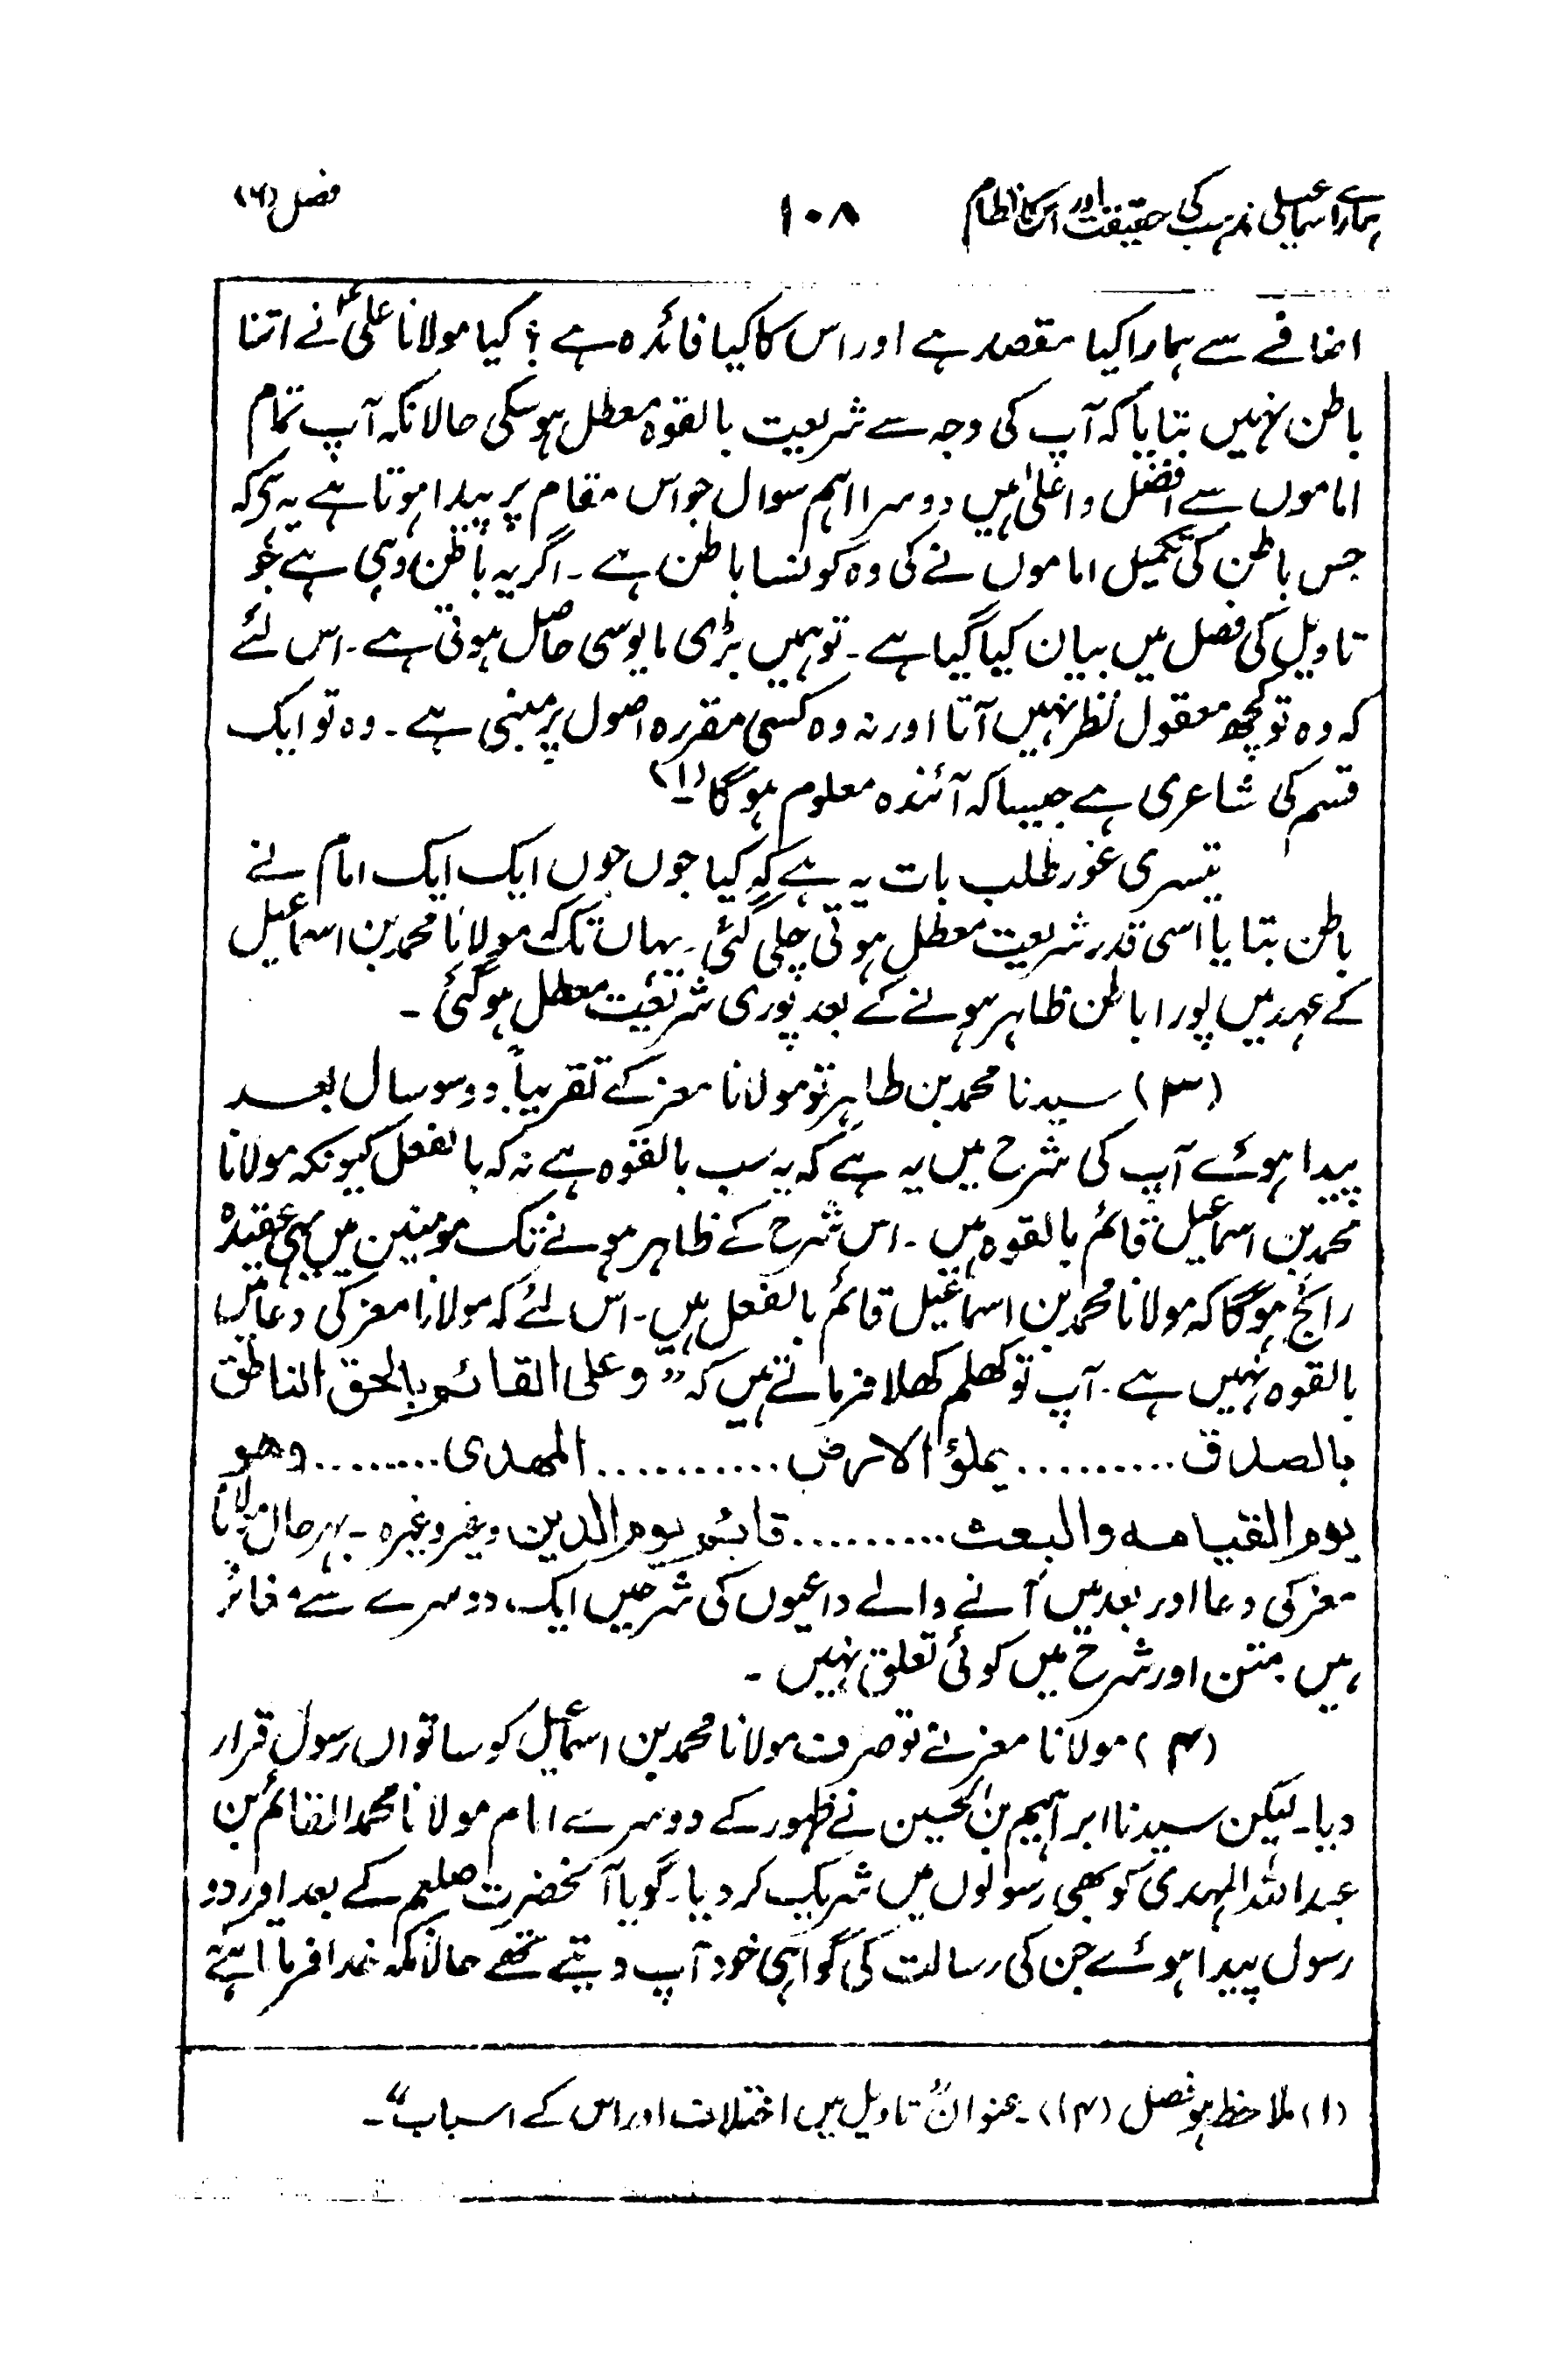 ہمارے اسماعیلی مذہب کی حقیقت اور اس کا نظام ۱۰۸ فصل (۶)
اضافے سے ہمارا کیا مقصد ہے اور اس کا کیا فائدہ ہے ؟ کیا مولانا علیؑ نے اتنا
باطن نہیں بتایا کہ آپ کی وجہ سے شریعت بالقوہ معطل ہو سکی حالانکہ آپ تمام
اماموں سے افضل و اعلیٰ ہیں دوسرا اہم سوال جو اس مقام پر پیدا ہوتا ہے یہ ہی کہ
جس باطن کی تکمیل اماموں نے کی وہ کونسا باطن ہے ۔ اگر یہ باطن وہی ہے جو
تاویل کی فصل میں بیان کیا گیا ہے ۔ تو ہمیں بڑی مایوسی حاصل ہوتی ہے ۔ اس لئے
کہ وہ تو کچھ معقول نظر نہیں آتا اور نہ وہ کسی مقررہ اصول پر مبنی ہے ۔ وہ تو ایک
قسم کی شاعری ہے جیسا کہ آئندہ معلوم ہوگا (۱)
تیسری غور طلب بات یہ ہے کہ کیا جوں جوں ایک ایک امام نے
باطن بتایا اسی قدر شریعت معطل ہوتی چلی گئی ۔ یہاں تک کہ مولانا محمد بن اسماعیل
کے عہد میں پورا باطن ظاہر ہونے کے بعد پوری شریعت معطل ہوگئی ۔
(۳) سیدنا محمد بن طاہر تو مولانا معز کے تقریباً دو سو سال بعد
پیدا ہوئے آپ کی شرح میں یہ ہے کہ یہ سب بالقوہ ہے نہ کہ بالفعل کیونکہ مولانا
محمد بن اسماعیل قائم بالقوہ ہیں ۔ اس شرح کے ظاہر ہونے تک مومنین میں یہی عقیدہ
رائج ہوگا کہ مولانا محمد بن اسماعیل قائم بالفعل ہیں ۔ اس لئے کہ مولانا معز کی دعا میں
بالقوہ نہیں ہے ۔ آپ تو کھلم کھلا فرماتے ہیں کہ ” وعلی القائم بالحق الناطق
بالصدق .......... یملؤ الارض ........... المھدی ......... وھو
یوم القیامہ والبعث .......... قائم یوم الدین وغیرہ وغیرہ ۔ بہرحال مولانا
معز کی دعا اور بعد میں آنے والے داعیوں کی شرحیں ایک دوسرے سے مغائر
ہیں متن اور شرح میں کوئی تعلق نہیں ۔
(۴) مولانا معز نے تو صرف مولانا محمد بن اسماعیل کو ساتواں رسول قرار
دیا ۔ لیکن سیدنا ابراہیم بن الحسین نے ظہور کے دوسرے امام مولانا محمد القائم بن
عبداللہ المہدی کو بھی رسولوں میں شریک کر دیا ۔ گویا آنحضرت صلعم کے بعد اور دو
رسول پیدا ہوئے جن کی رسالت کی گواہی خود آپ دیتے تھے حالانکہ خدا فرماتا ہے
(۱) ملاحظہ ہو فصل (۱۴) ۔ عنوان ” تاویل میں اختلاف اور اس کے اسباب “ ۔